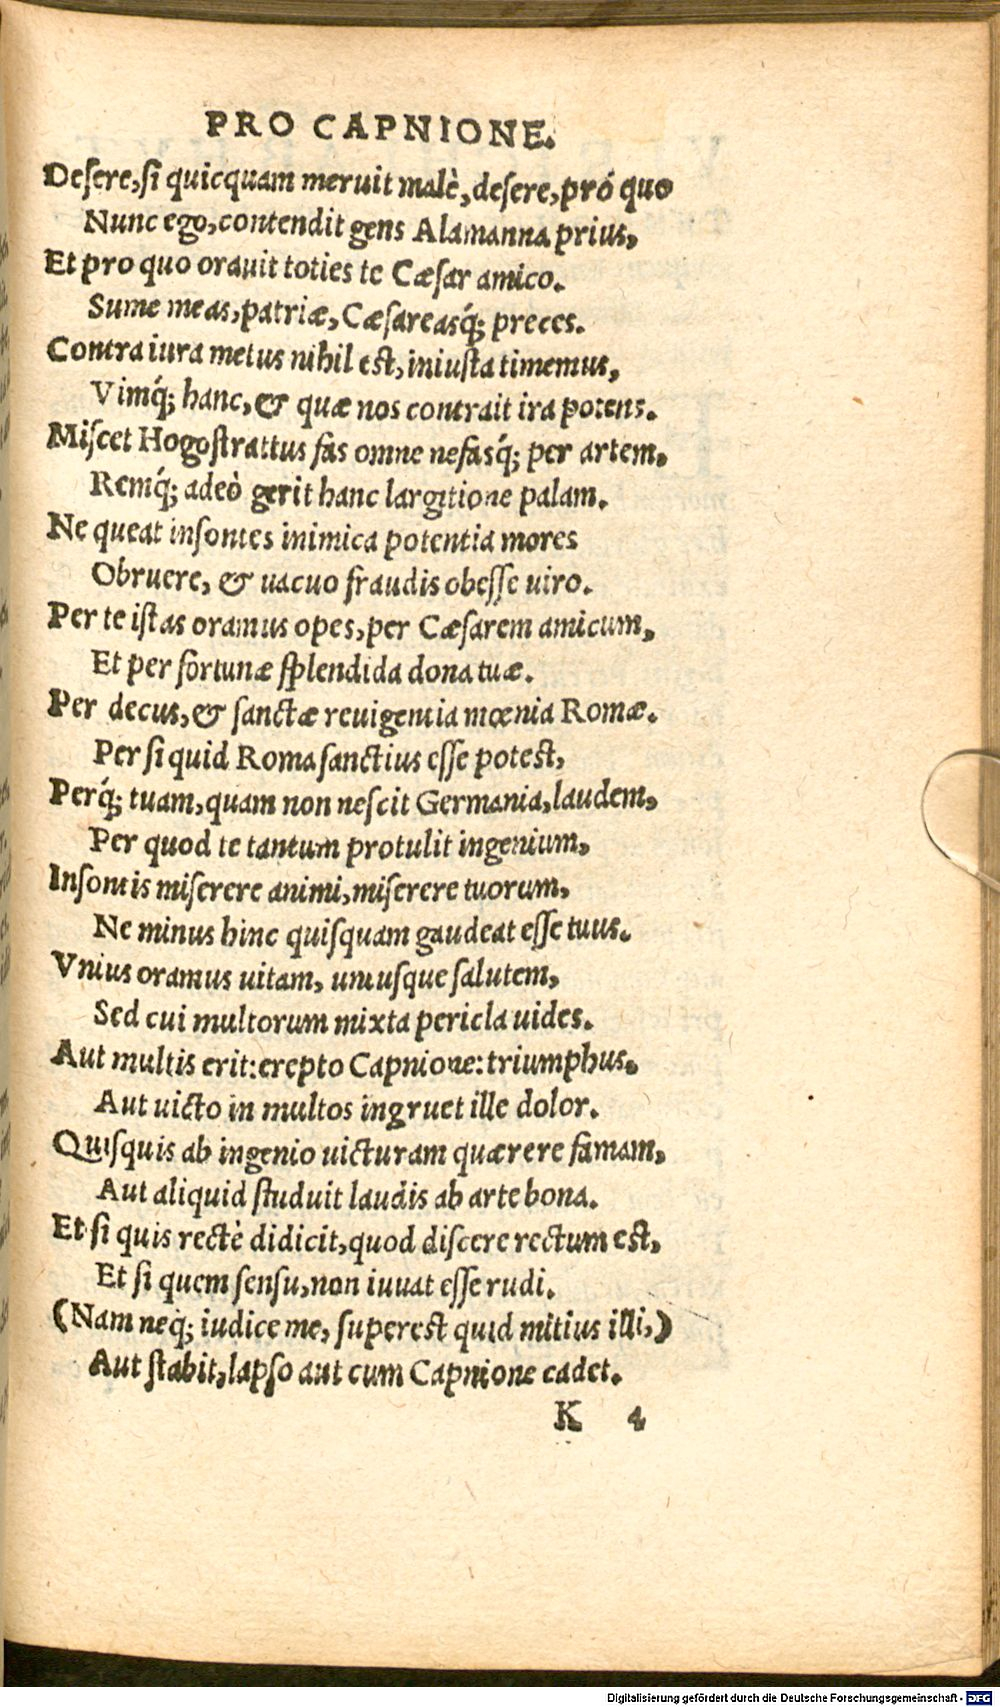 PRO CAPNIONE.
Desere, si quicquam meruit malè, desere, pró quo
Nunc ego, contendit gens Alamanna prius,
Et pro quo orauit toties te Cæsar amico.
Sume meas, patriæ, Cæsareasq́; preces.
Contra iura metus nihil est, iniusta timemus,
Vimq́; hanc, & quæ nos contrait ira potens.
Miscet Hogostrattus fas omne nefasq́; per artem,
Remq́; adeò gerit hanc largitione palam.
Ne queat insontes inimica potentia mores
Obruere, & uacuo fraudis obesse uiro.
Per te istas oramus opes, per Cæsarem amicum,
Et per fortunæ splendida dona tuæ.
Per decus, & sanctæ reuigentia mœnia Romæ.
Per si quid Roma sanctius esse potest,
Perq́; tuam, quam non nescit Germania, laudem,
Per quod te tantum protulit ingenium,
Insontis miserere animi, miserere tuorum,
Ne minus hinc quisquam gaudeat esse tuus.
Vnius oramus uitam, uniusque salutem,
Sed cui multorum mixta pericla uides.
Aut multis erit: erepto Capnione: triumphus.
Aut uicto in multos ingruet ille dolor.
Quisquis ab ingenio uicturam quærere famam,
Aut aliquid studuit laudis ab arte bona.
Et si quis rectè didicit, quod discere rectum est,
Et si quem sensu, non iuuat esse rudi.
(Nam neq; iudice me, superest quid mitius illi,)
Aut stabit, lapso aut cum Capnione cadet.
K 4
Digitalisierung gefördert durch die Deutsche Forschungsgemeinschaft - DFG